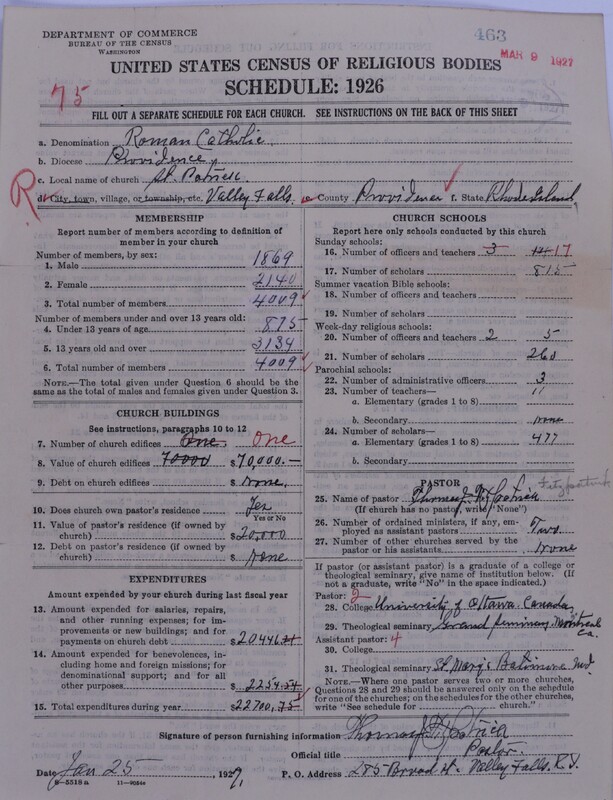 DEPARTMENT OF COMMERCE
BUREAU OF THE CENSUS
WASHINGTON
463
MAR 9 1927
UNITED STATES CENSUS OF RELIGIOUS BODIES
SCHEDULE: 1926
75
FILL OUT A SEPARATE SCHEDULE FOR EACH CHURCH. SEE INSTRUCTIONS ON THE BACK OF THIS SHEET
a. Denomination Roman Catholic
b. Diocese Providence
c. Local name of church St. Patrick
R
d. City, town, village, or township, etc. Valley Falls e. County Providence f. State Rhode Island
MEMBERSHIP
Report number of members according to definition of member in your church
Number of members, by sex:
1. Male 1869
2. Female 2140
3. Total number of members 4009
Number of members under and over 13 years old:
4. Under 13 years of age 875
5. 13 years old and over 3134
6. Total number of members 4009
NOTE.—The total given under Question 6 should be the same as the total of males and females given under Question 3.
CHURCH BUILDINGS
See instructions, paragraphs 10 to 12
7. Number of church edifices One One
8. Value of church edifices 70000 $70,000.—
9. Debt on church edifices $ None
10. Does church own pastor's residence? Yes
Yes or No
11. Value of pastor's residence (if owned by church) $20,000
12. Debt on pastor's residence (if owned by church) $ None
EXPENDITURES
Amount expended by your church during last fiscal year
13. Amount expended for salaries, repairs, and other running expenses; for improvements or new buildings; and for payments on church debt $20446.21
14. Amount expended for benevolences, including home and foreign missions; for denominational support; and for all other purposes $2254.54
15. Total expenditures during year $22700.75
CHURCH SCHOOLS
Report here only schools conducted by this church
Sunday schools:
16. Number of officers and teachers 3 17
17. Number of scholars 815
Summer vacation Bible schools:
18. Number of officers and teachers
19. Number of scholars
Week-day religious schools:
20. Number of officers and teachers 2 5
21. Number of scholars 260
Parochial schools:
22. Number of administrative officers 3
23. Number of teachers—
a. Elementary (grades 1 to 8) 11
b. Secondary None
24. Number of scholars—
a. Elementary (grades 1 to 8) 477
b. Secondary
PASTOR
25. Name of pastor Thomas J. Fitzpatrick Fitzpatrick
(If church has no pastor, write "None")
26. Number of ordained ministers, if any, employed as assistant pastors Two
27. Number of other churches served by the pastor or his assistants None
If pastor (or assistant pastor) is a graduate of a college or theological seminary, give name of institution below. (If not a graduate, write "No" in the space indicated.)
Pastor: 2
28. College University of Ottawa Canada
29. Theological seminary Grand Seminary Montreal Ca.
Assistant pastor: 4
30. College
31. Theological seminary St. Mary's Baltimore Md.
NOTE.—Where one pastor serves two or more churches, Questions 28 and 29 should be answered only on the schedule for one of the churches; on the schedules for the other churches, write "See schedule for ........ church."
Signature of person furnishing information
Official title Pastor
Date Jan 25 1927.
P. O. Address 285 Broad St. Valley Falls. R.I.
8—5518a 11—9054a